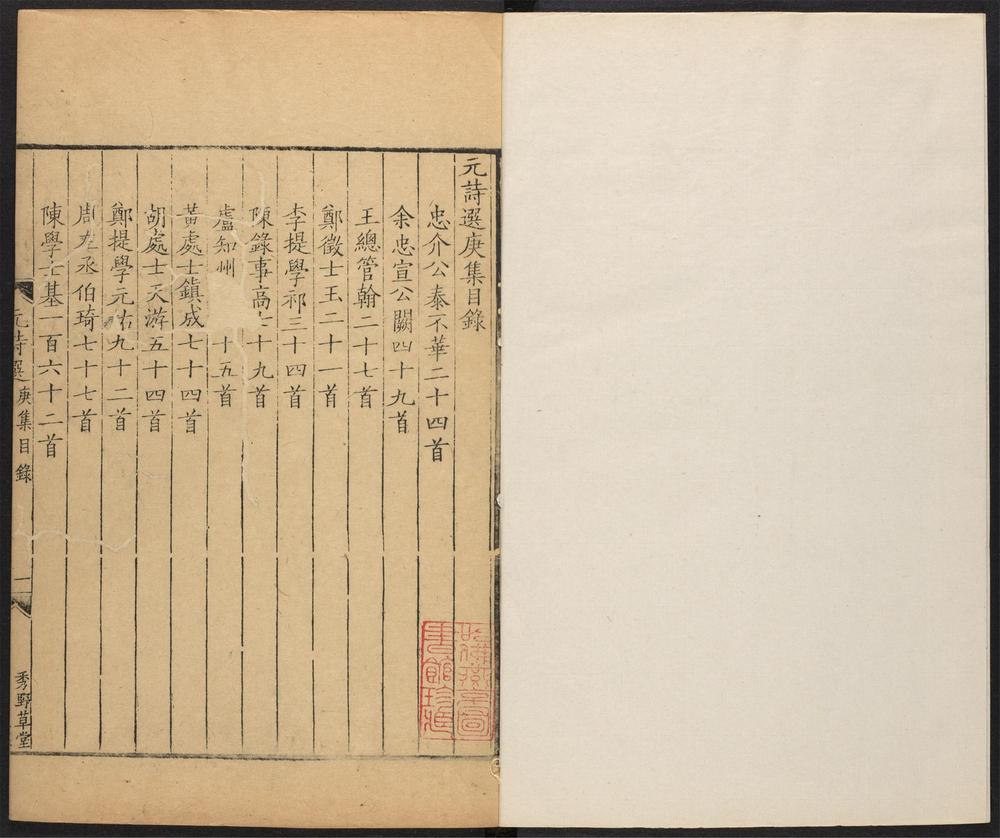 元詩選庚集目錄
忠介公泰不華二十四首
余忠宣公闕四十九首
王總管翰二十七首
鄭徵士玉二十一首
李提學祁三十四首
陳錄事高七十九首
盧知州十五首
黃處士鎮成七十四首
胡處士天游五十四首
鄭提學元祐九十二首
周左丞伯琦七十七首
陳學士基一百六十二首
元詩選 庚集目錄 一 秀野草堂
哈佛燕京圖
書館珍藏